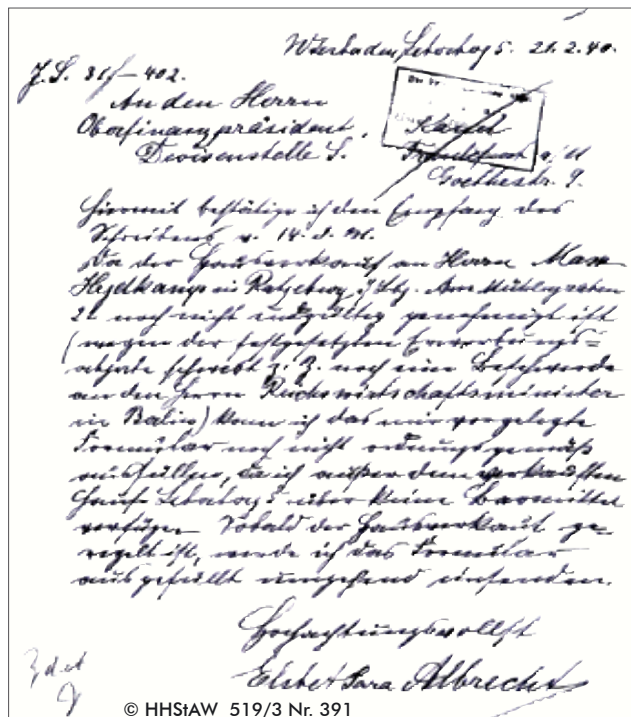 Wiesbaden, 5. 21.2.40.
J.S. 81/-402.
An den Herrn
Oberfinanzpräsident,
Devisenstelle S.
Kassel
Frankfurt a/M
Goethestr. 9.
Hiermit bestätige ich den Empfang des
Schreibens v. 14. d. M.
Da der Hausverkauf an Herrn Max
Heydkamp in Ratzeburg i/Lbg. Am Mühlengraben
21 noch nicht endgültig genehmigt ist
(wegen der festgesetzten Erwerbungs=
abgabe schwebt z. Z. noch eine Beschwerde
an den Herrn Reichswirtschaftsminister
in Berlin) kann ich das mir vorgelegte
Formular noch nicht ordnungsgemäß
ausfüllen, da ich außer dem verkauften
Hause 5 über keine Barmittel
verfüge. Sobald der Hausverkauf ge=
regelt ist, werde ich das Formular
ausgefüllt umgehend einsenden.
Hochachtungsvollst
Sara Albrecht
© HHStAW 519/3 Nr. 391